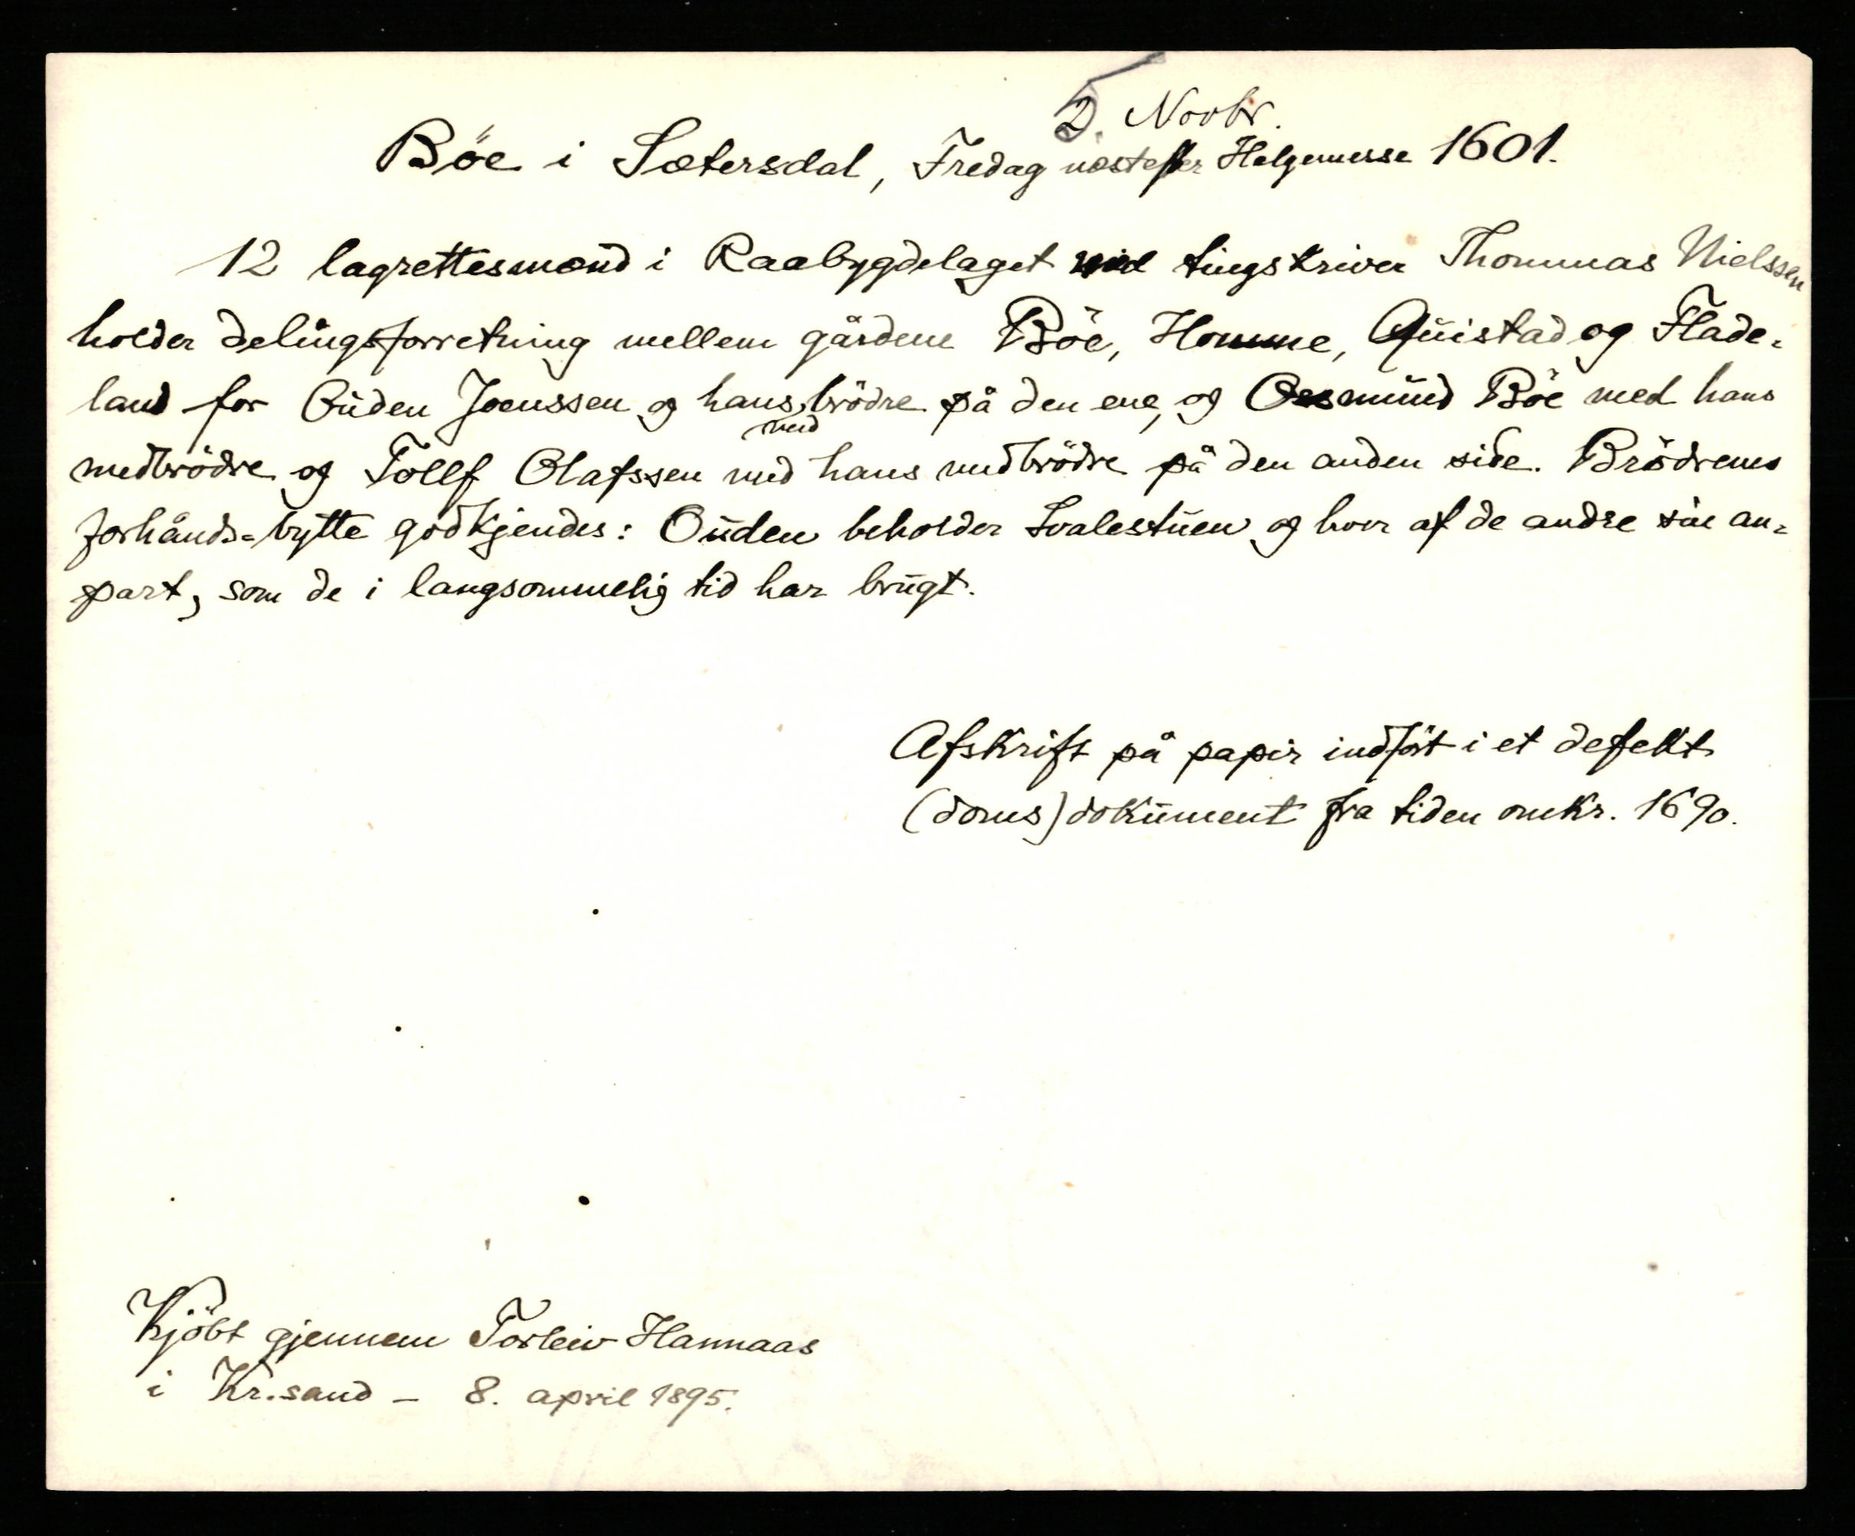 2. Novbr.
Böe i Sætersdal, Fredag næstefter Helgemesse 1601.
12 lagrettesmænd i Raabygdelaget med tingskriver Thommas Nielssen
holder delingsforretning mellem gårdene Böe, Homme, Quistad og Flade-
land for Ouden Joenssen og hans medbrödre på den ene, og Oesmund Böe med hans
medbrödre og Tollf Olafssen med hans medbrödre på den anden side. Brödrenes
forhånds-bytte godkjendes: Ouden beholder Svalestuen og hver af de andre sin an-
part, som de i langsommelig tid har brugt.
Afskrift på papir indfört i et defekt
(doms)dokument fra tiden omkr. 1690.
Kjöbt gjennem Torleiv Hannaas
i Kr.sand – 8. april 1895.